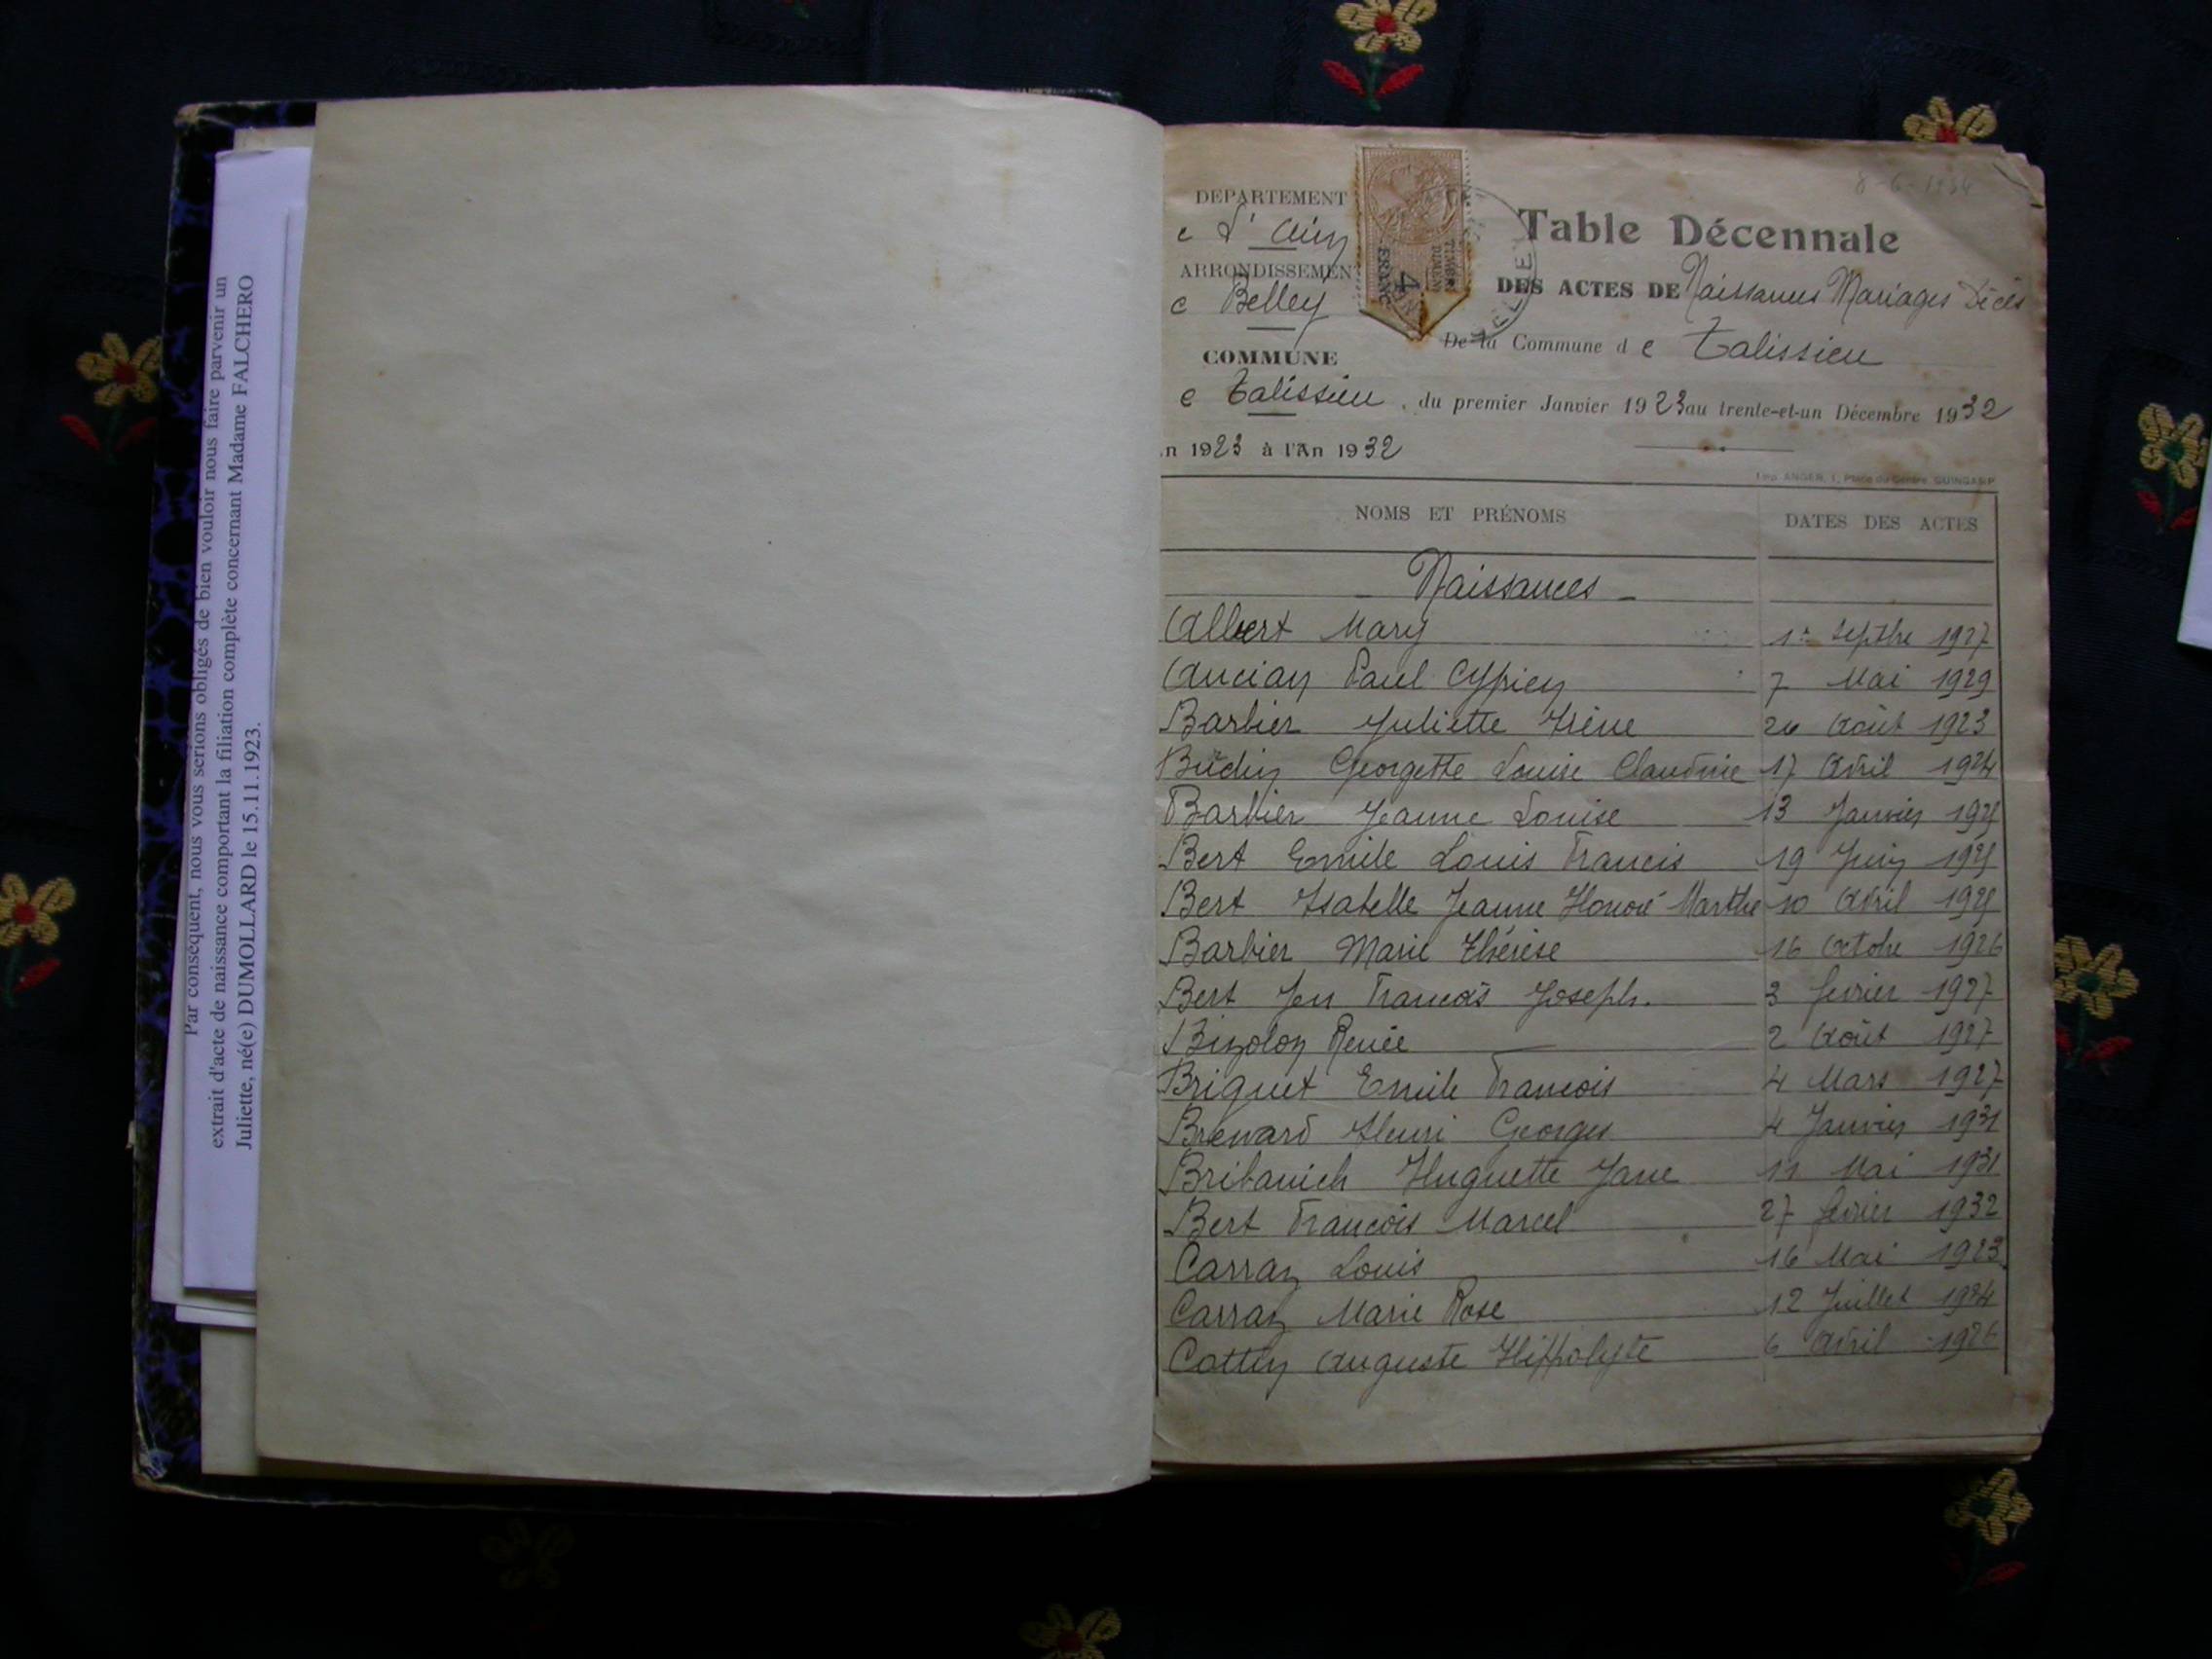 Par conséquent, nous vous serions obligés de bien vouloir nous faire parvenir un
extrait d'acte de naissance comportant la filiation complète concernant Madame FALCHERO
Juliette, né(e) DUMOLLARD le 15.11.1923.
DEPARTEMENT
e L'Ain
ARRONDISSEMEN
e Belley
COMMUNE
e Talissieu
n 1923 à l'An 1932
4
FRANC
TIMBRE
DIMEN
BELLEY
Table Décennale
DES ACTES DE Naissances Mariages Décès
De la Commune de Talissieu
, du premier Janvier 1923 au trente-et-un Décembre 1932
Imp. ANGER, 1, Place du Centre, GUINGAMP
NOMS ET PRÉNOMS DATES DES ACTES
- Naissances -
Albert Mary 1er Septbre 1927
Ancian Paul Cyprien 7 Mai 1929
Barbier Juliette Irène 26 Août 1923
Budin Georgette Louise Claudine 17 Avril 1924
Barbier Jeanne Louise 13 Janvier 1925
Bert Emile Louis Francis 19 Juin 1925
Bert Isabelle Jeanne Honoré Marthe 10 Avril 1925
Barbier Marie Thérèse 16 Octobre 1926
Bert Jen François Joseph. 3 fevrier 1927
Bizolon Renée 2 Août 1927
Briquet Emile Francois 4 Mars 1927
Brenard Henri Georges 4 Janvier 1931
Bribanich Huguette Jane 11 Mai 1931
Bert Francois Marcel 27 fevrier 1932
Carraz Louis 16 Mai 1923
Carraz Marie Rose 12 Juillet 1924
Cottin Auguste Hippolyte 6 Avril 1926